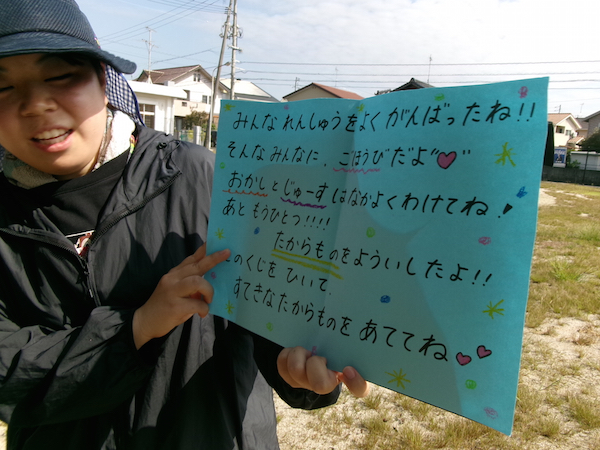 みんなれんしゅうをよくがんばったね!!
そんなみんなに、ごほうびだよ"♥"
おかしとじゅーすはなかよくわけてね!
あともうひとつ!!!!
たからものをよういしたよ!!
のくじをひいて、
すてきなたからものをあててね♥♥